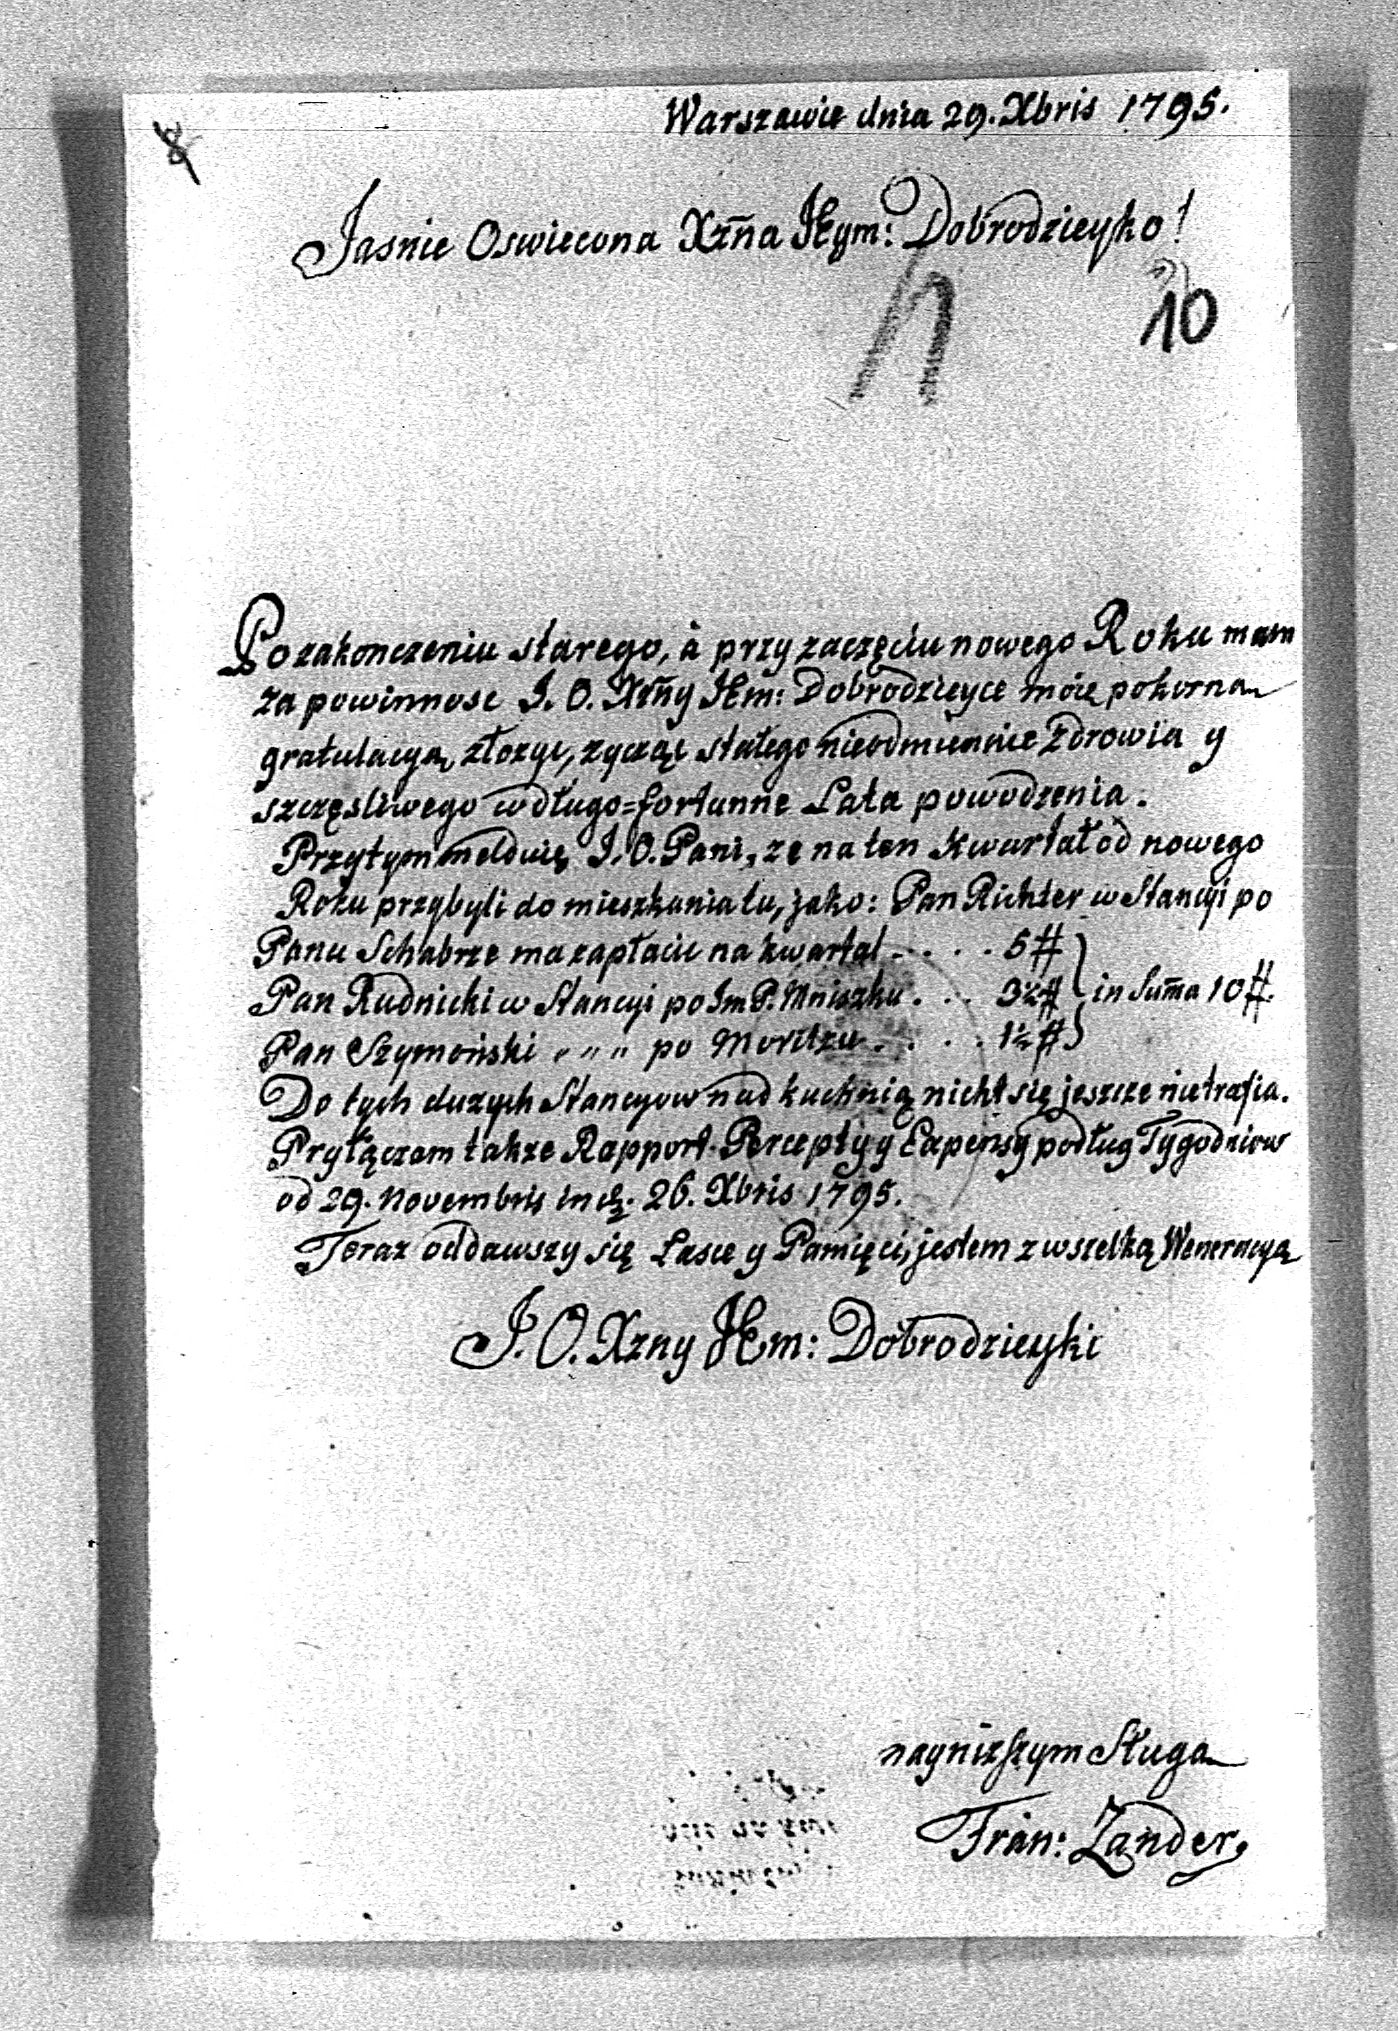 Warszawie dnia 29. Xbris 1795.
8
Jasnie Oswiecona Xżna JEym: Dobrodzieyko!
10
Po zakonczeniu starego, à przy zaczęciu nowego Roku mam
za powinnosc J. O. Xżny JEm: Dobrodzieyce moię pokorną
gratulacyą złozyc, zycząc stałego nieodmiennie Zdrowia y
szczęsliwego w długo=fortunne Lata powodzenia.
Przytym melduię J. O. Pani, ze na ten Kwartał od nowego
Roku przybyli do mieszkania tu, jako: Pan Richter w Stancyi po
Panu Schabrze ma zapłacic na kwartal . . . . 5 #
Pan Rudnicki w Stancyi po Jm P. Mniszku . . . 3½ # } in Suma 10 #.
Pan Szymoński " " " po Moritzu . . . . 1½ #
Do tych duzych Stancyow nad kuchnią nicht się jeszcze nietrafia.
Pryłączam takze Rapport Percepty y Expensy podług Tygodniow
od 29. Novembris incl. 26. Xbris 1795.
Teraz oddawszy się Łasce y Pamięci, jestem z wszelką Weneracyą
J. O. Xzny JEm: Dobrodzieyki
naynizszym Sługa
Fran: Zander.